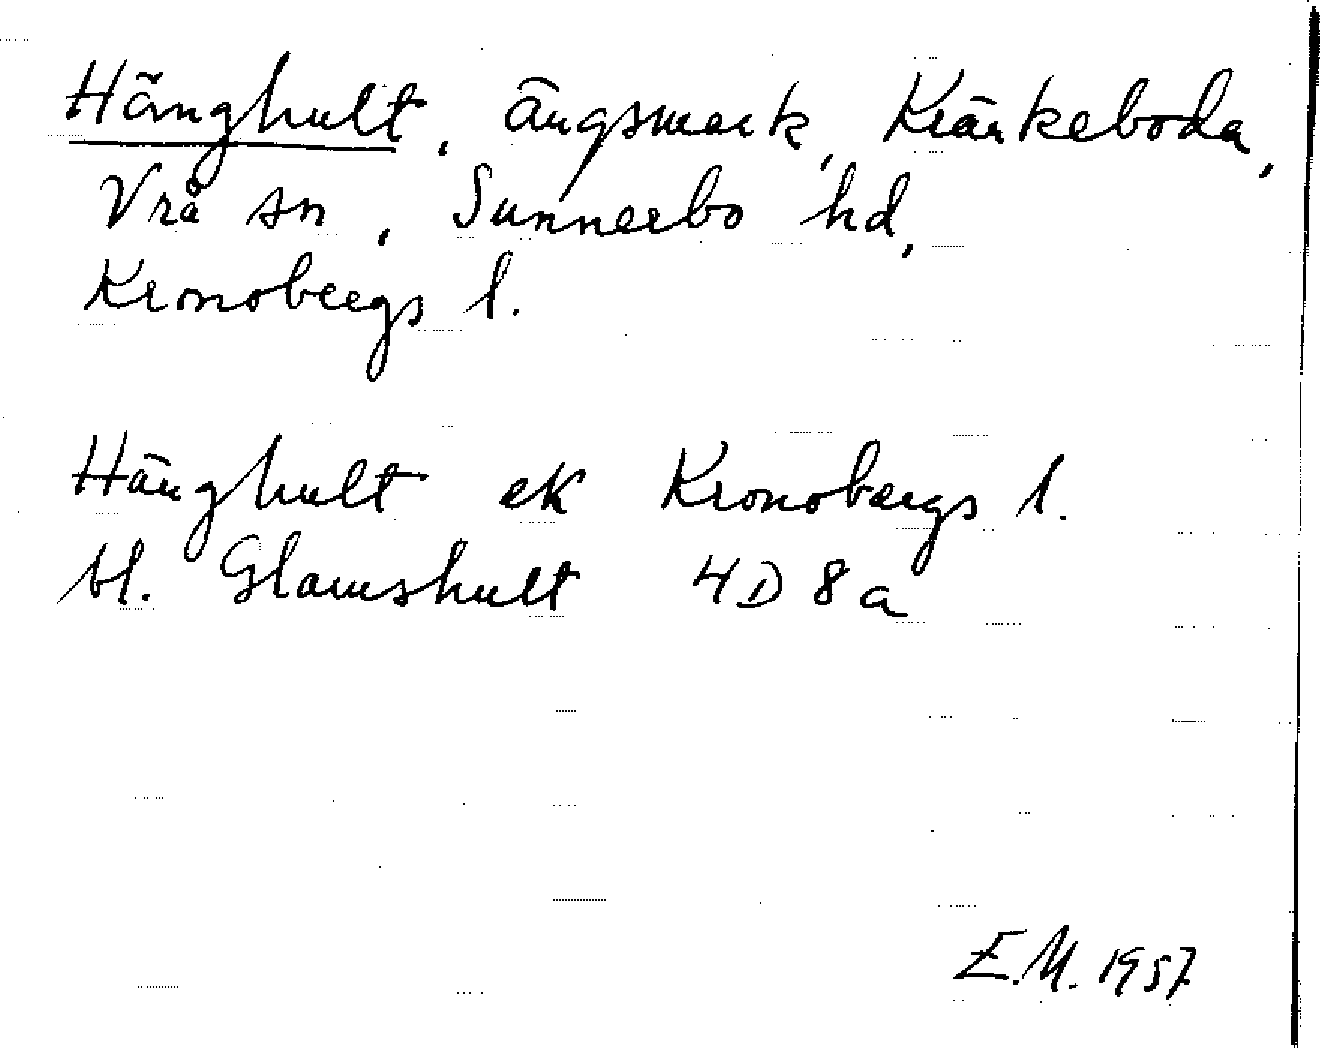 Hänghult, ängsmark, Kränkeboda,
Vrå sn, Sunnerbo hd,
Kronobergs l.
Hänghult ek Kronobergs l.
bl. Glamshult 4D 8a
E.M. 1957